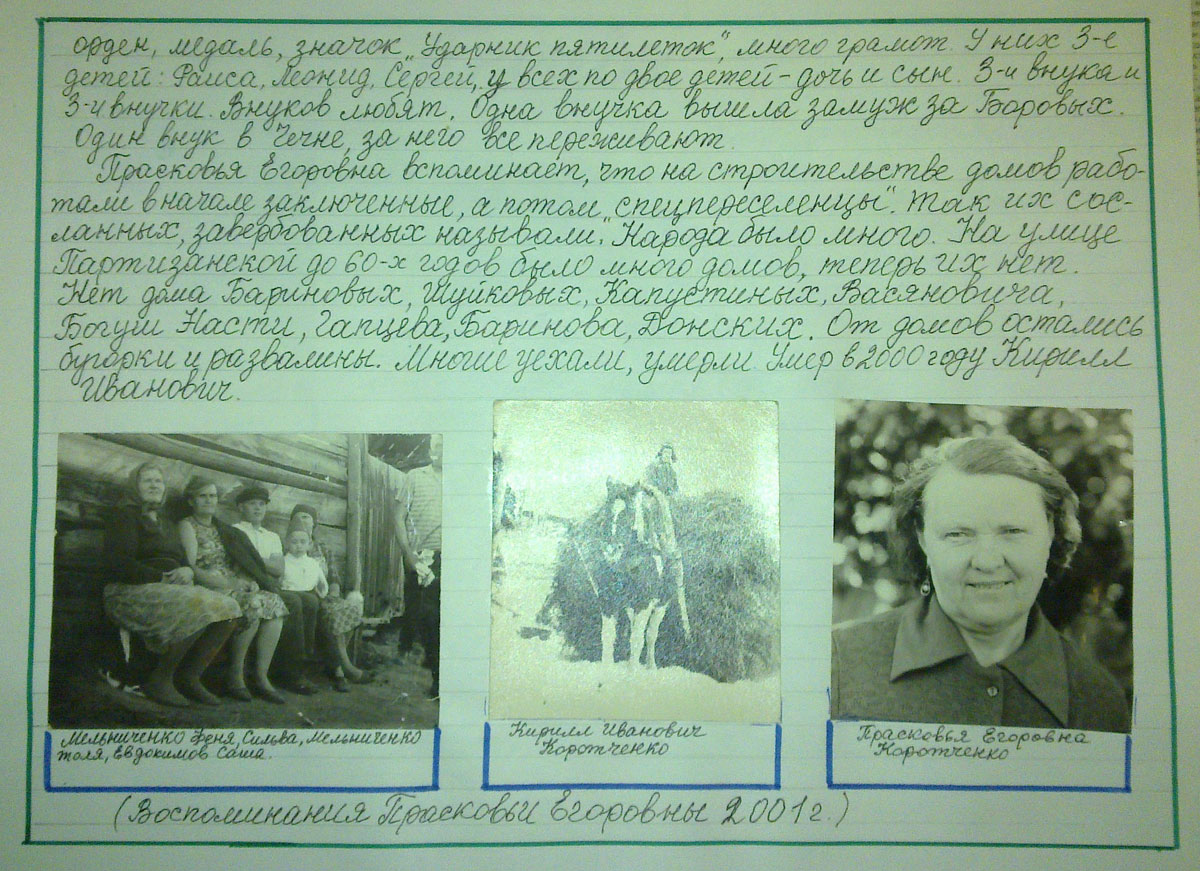 орден, медаль, значок „Ударник пятилеток", много грамот. У них 3-е
детей: Раиса, Леонид, Сергей, у всех по двое детей – дочь и сын. 3-и внука и
3-и внучки. Внуков любят. Одна внучка вышла замуж за Боровых.
Один внук в Чечне, за него все переживают.
Прасковья Егоровна вспоминает, что на строительстве домов рабо-
тали вначале заключенные, а потом „спецпереселенцы". Так их сос-
ланных, завербованных называли." Народа было много. На улице
Партизанской до 60-х годов было много домов, теперь их нет.
Нет дома Бариновых, Шуйковых, Капустиных, Васяновича,
Богуш Насти, Гапцева, Баринова, Донских. От домов остались
бугорки и развалины. Многие уехали, умерли. Умер в 2000 году Кирилл
Иванович.
Мельниченко Феня, Сильва, Мельниченко
Толя, Евдокимов Саша.
Кирилл Иванович
Коротченко
Прасковья Егоровна
Коротченко
(Воспоминания Прасковьи Егоровны 2001г.)